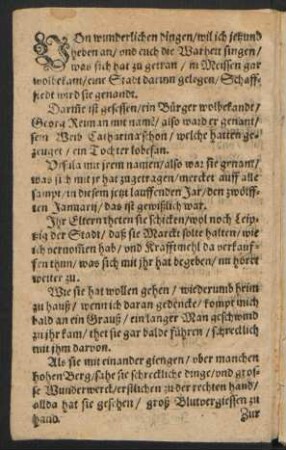 VOn wunderlichen dingen/wil ich jetzund
heben an/ vnd euch die Warheit singen/
was sich hat zu getran / in Meissen gar
wolbekant/eine Stadt darinn gelegen/Schaff-
stedt wird sie genandt.
Darinne ist gesessen/ein Bürger wolbekandt/
Georg Reiman mit name/ also ward er genant/
sein Weib Catharina schon / welche hatten ge-
zeuget / ein Tochter lobesan.
Vrsula mit jrem namen/also war sie genant/
was sich mit jr hat zugetragen/mercket auff alle
sampt/in diesem jetzt lauffenden Jar/den zwölff-
ten Januarij / das ist gewißlich war.
Ihr Eltern theten sie schicken/wol noch Leip-
zig der Stadt/ daß sie Marckt solte halten/ wie
ich vernomen hab/ vnd Krafftmehl da verkauf-
fen thun/ was sich mit jhr hat begeben/ nu höret
weiter zu.
Wie sie hat wollen gehen / wiederumb heim
zu hauß/ wenn ich daran gedencke/ kompt mich
bald an ein Grauß/ ein langer Man geschwind
zu jhr kam/ thet sie gar balde führen / schrecklich
mit jhm darvon.
Als sie mit einander giengen/ vber manchen
hohen Berg/sahe sie schreckliche dinge/vnd gros-
se Wunderwerck/erstlichen zu der rechten hand/
allda hat sie gesehen/ groß Blutvergiessen zu
hand. Zur